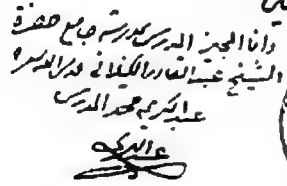 وانا المجيز المدرس بمدرسة جامع حضرة
الشيخ عبد القادر الكيلاني قدس الله سره
عبد الكريم محمد المدرس
عبد الكريم